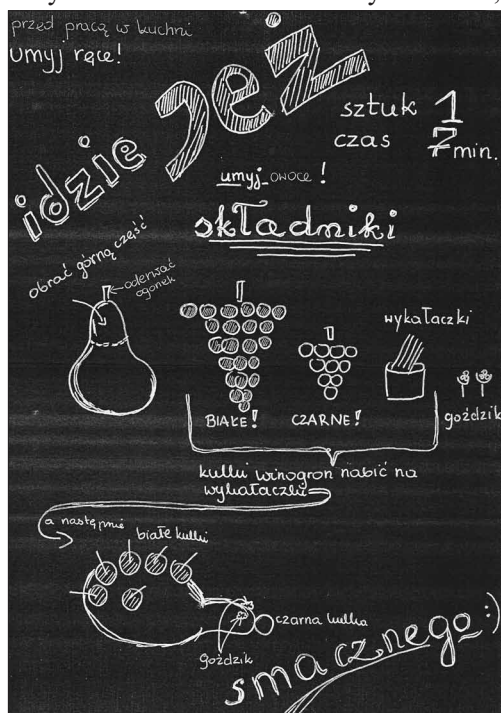 przed pracą w kuchni
umyj ręce!
idzie jeż
sztuk 1
czas 7 min.
umyj owoce!
składniki
obrać górną część
oderwać
ogonek
wykałaczki
BIAŁE!
CZARNE!
goździk
kulki winogron nabić na
wykałaczki
a następnie
białe kulki
czarna kulka
goździk
smacznego :)